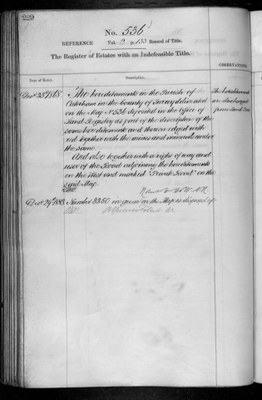 229
No. 536
REFERENCE Vol. 3 p. 133 Record of Title.
The Register of Estates with an Indefeasible Title.
OBSERVATIONS.
Date of Entry.
Description.
The hereditaments in the Parish of
Caterham in the County of Surrey delineated
on the Map No 536 deposited in the Office of
Land Registry as part of the description of the
same hereditaments and thereon edged with
red together with the mines and minerals under
the same.
And also together with a right of way and
user of the Road adjoining the hereditaments
on the West and marked "Private Road" on the
said Map.
The hereditaments
Number 3350 as given on the Map is disposed of